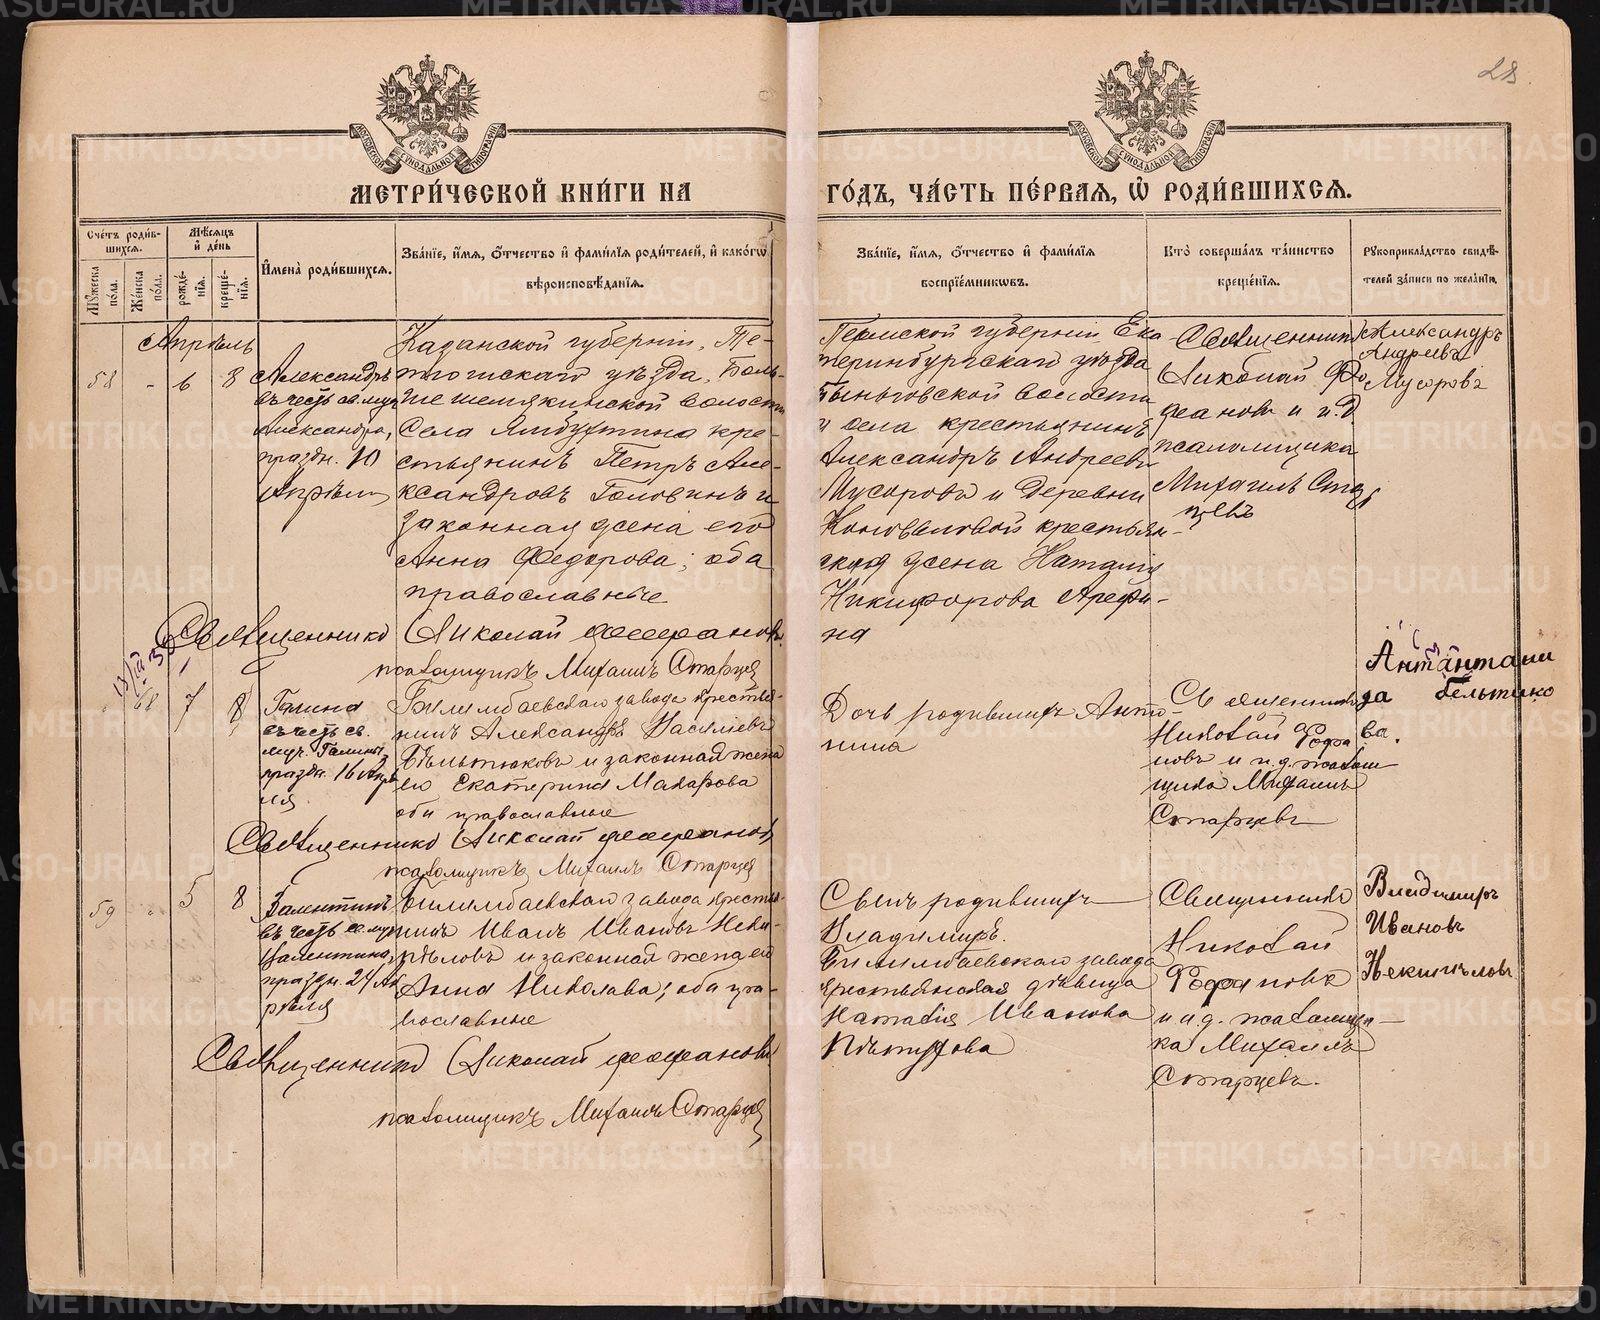 28
МЕТРИЧЕСКОЙ КНИГИ НА
ГОДЪ, ЧАСТЬ ПЕРВАЯ, Ѡ РОДИВШИХСЯ.
Счетъ родившихся.
Мѣсяцъ и день
Мужеска пола.
Женска пола.
рожденія.
крещенія.
Имена родившихся.
Званіе, имя, отчество и фамилія родителей, и какогѡ
вѣроисповѣданія.
Званіе, имя, отчество и фамилія
воспріемникѡвъ.
Кто совершалъ таинство
крещенія.
Рукоприкладство свидѣ-
телей записи по желанію.
Апрѣль
58 - 6 8
Александръ
въ честь св. муч.
Александра,
праздн. 10
Апрѣля
Казанской губерніи, Те-
тюшскаго уѣзда, Боль-
шешемякинской волости
Села Ямбухтина кре-
стьянинъ Петръ Але-
ксандровъ Головинъ и
законная жена его
Анна Федорова; оба
православные
Пермской губерніи Ека
теринбургскаго уѣзда
волости
и села крестьянинъ
Александръ Андреевъ
Мусоровъ и деревни
Коноваловой крестьян-
ская жена Наталія
Никифорова Арефи-
на
Священникъ
Николай Фо
фановъ и и.д.
псаломщика
Михаилъ Стар
цевъ
Александръ
Андреевъ
Мусоровъ
Священникъ Николай Фофановъ
псаломщикъ Михаилъ Старцев
68 7 8
Галина
въ честь св.
муч. Галины,
праздн. 16 Апрѣ
ля.
Билимбаевскаго завода крестья-
нинъ Александръ Васильевъ
Бѣльтюковъ и законная жена
его Екатерина Макарова
оба православные
Дочь родившихъ Анто-
нина
Священникъ
Николай Фофа
новъ и и.д. псалом
щика Михаилъ
Старцевъ
Антонтани
да бельтюко
ва.
Священникъ Николай Фофановъ
псаломщикъ Михаилъ Старцев
59 5 8
Валентинъ
въ честь св. муч.
Валентина,
праздн. 24 Ап
рѣля
Билимбаевскаго завода крестья-
нинъ Иванъ Ивановъ Неки-
пѣловъ и законная жена его
Анна Николаева; оба пра-
вославные
Сынъ родившихъ
Владимиръ.
Билимбаевскаго завода
крестьянская дѣвица
Наталія Иванова
Пѣтухова
Священникъ
Николай
Фофановъ
и и.д. псаломщи-
ка Михаилъ
Старцевъ.
Владимиръ
Ивановъ
Некипѣловъ
Священникъ Николай Фофановъ
псаломщикъ Михаилъ Старцев
METRIKI.GASO-URAL.RU